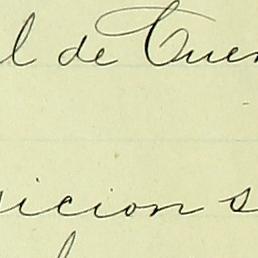 l de Cuen
icion s